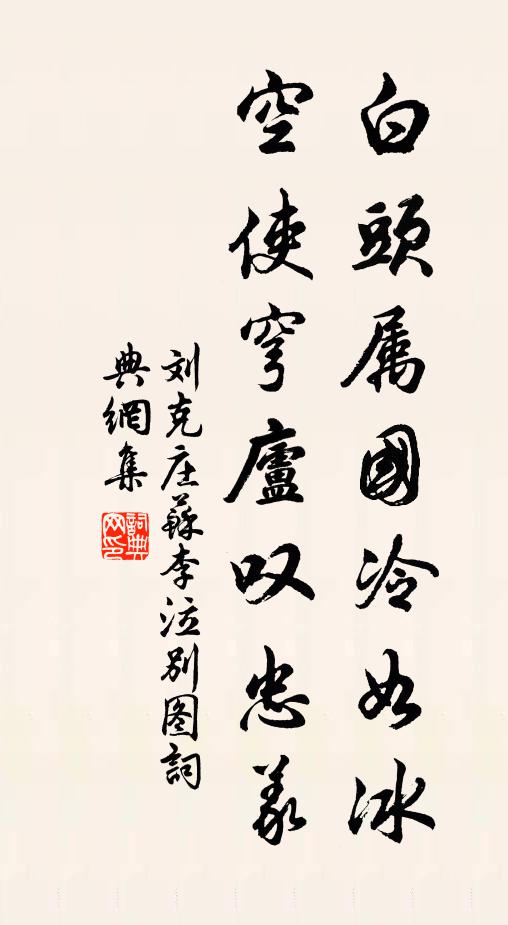 白頭属國冷如冰
空使穹廬叹忠義
刘克庄蘇李泣别图詞
典網集
詞典
网印